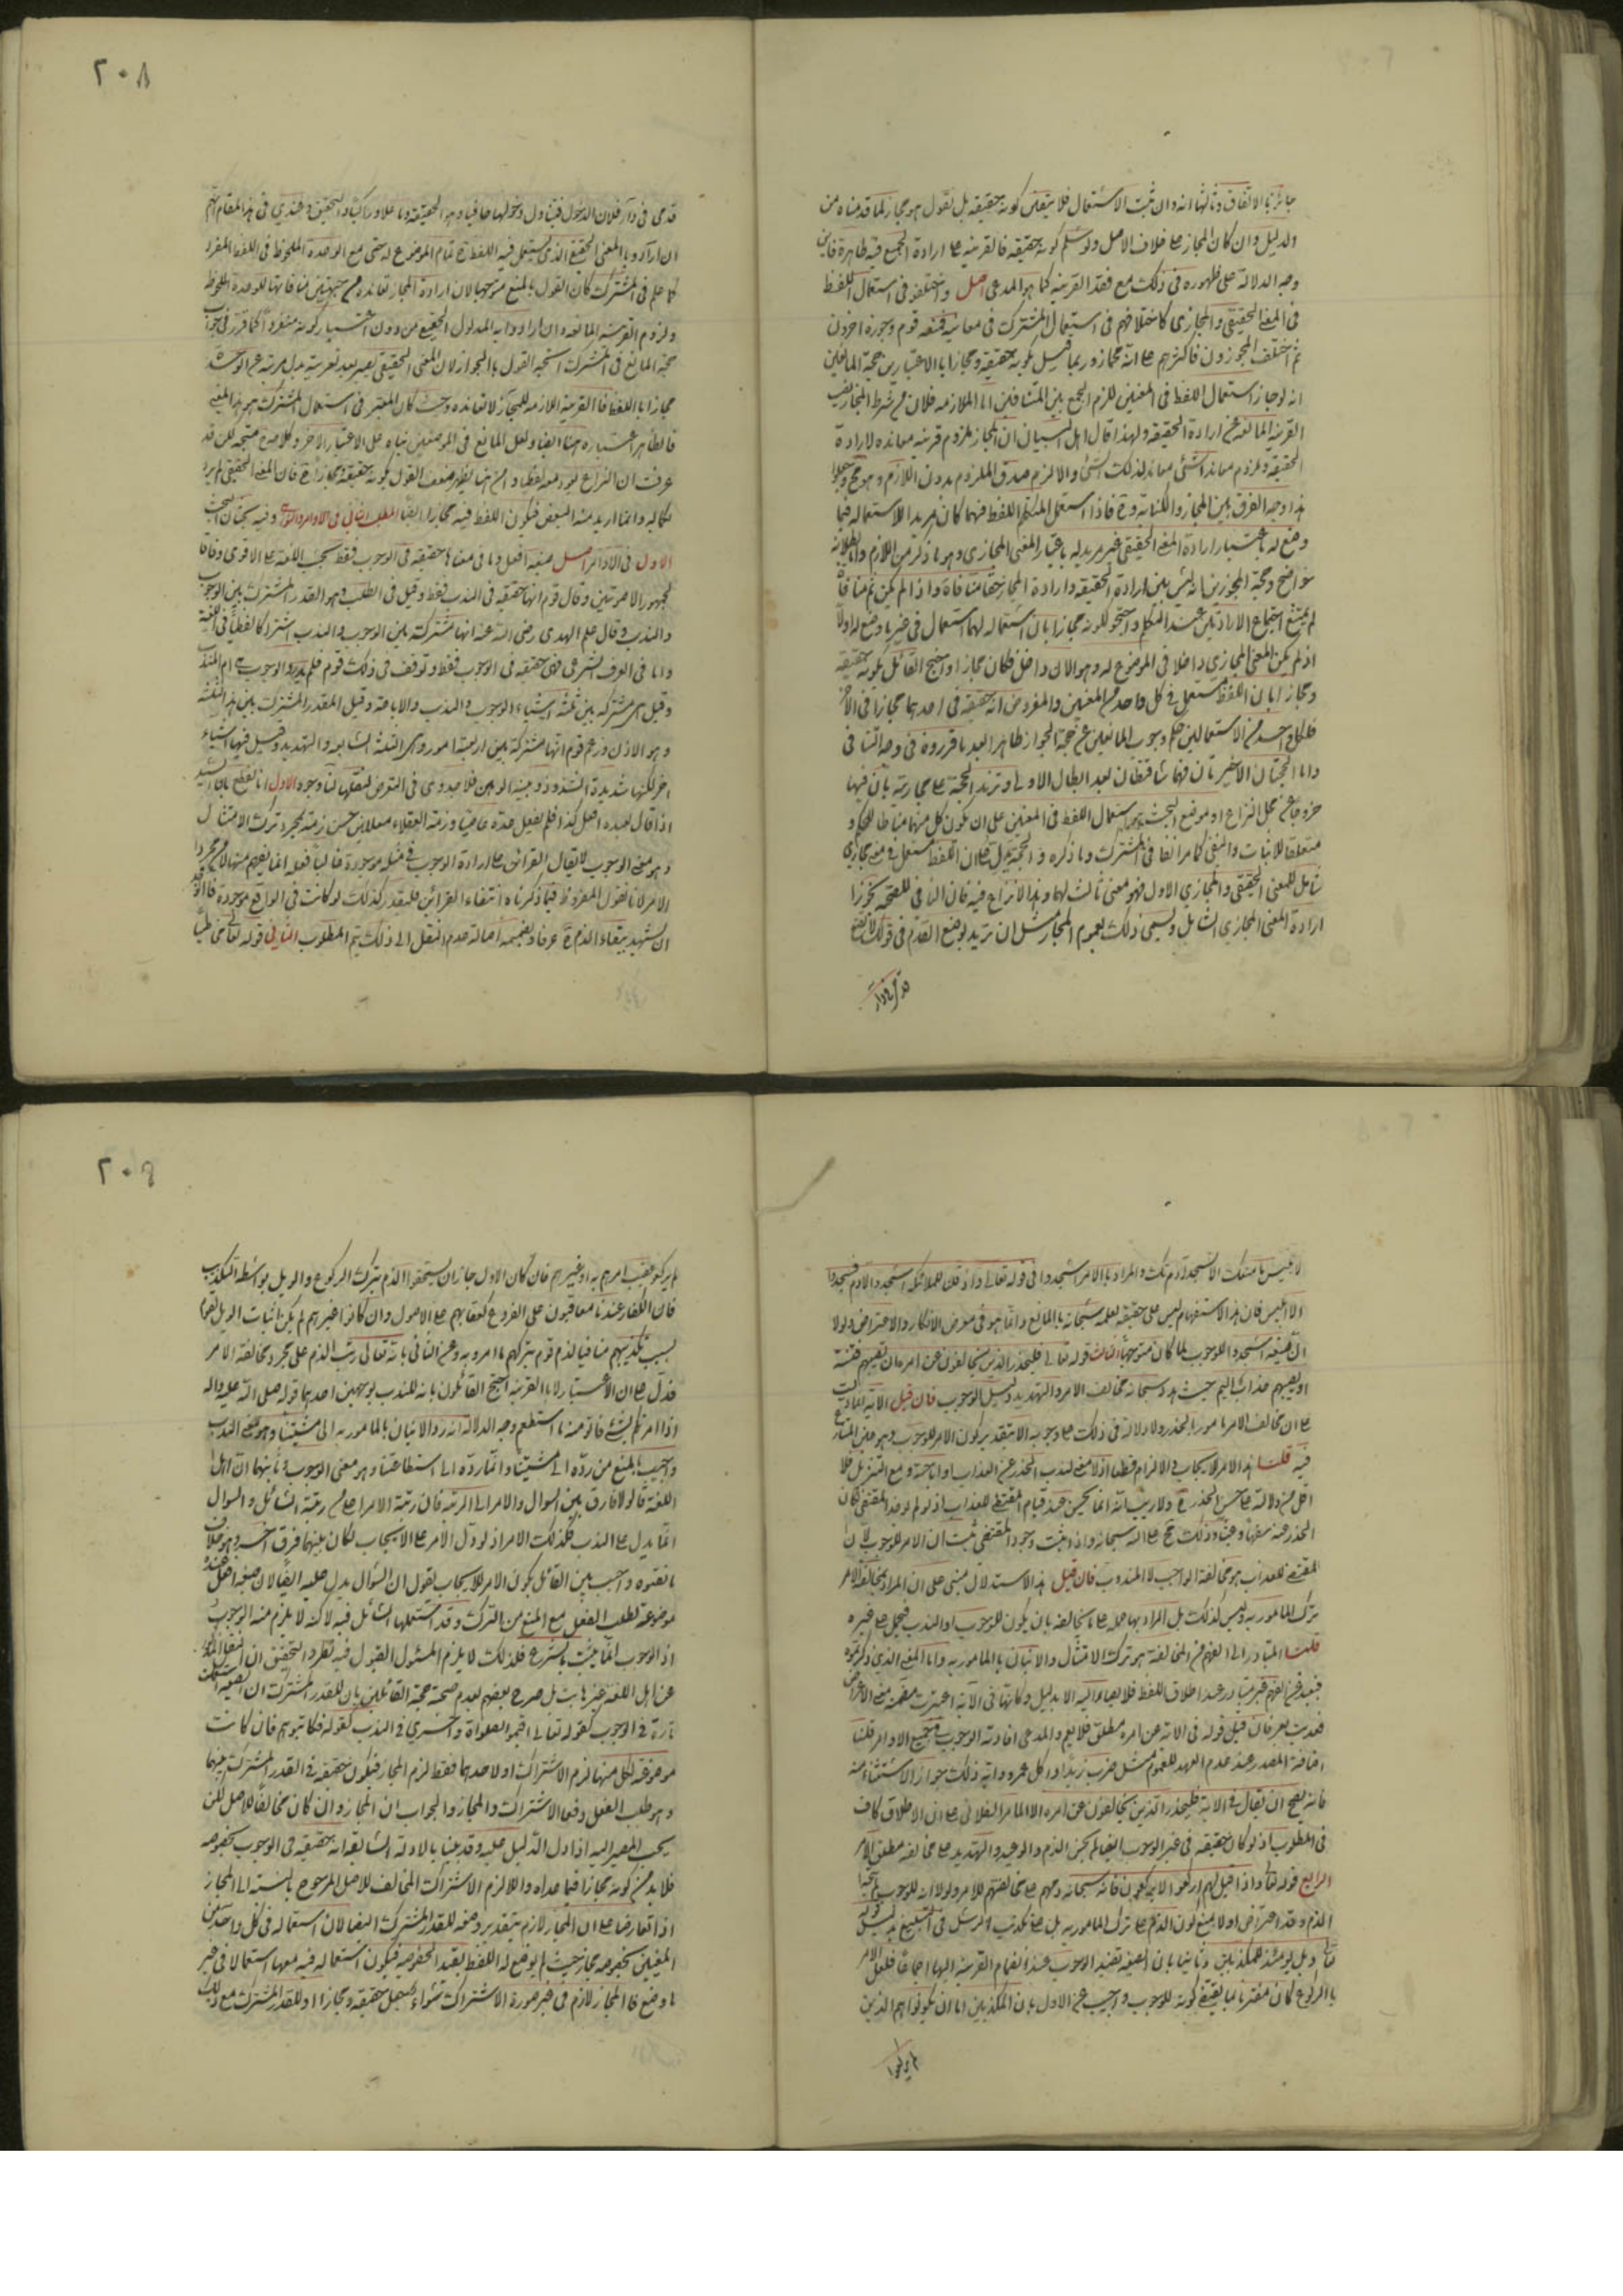 جائز بالاتفاق وثالثها انه وان ثبت الاستعمال فلا يتعين كونه حقيقة بل نقول هو مجاز لما قدمناه من
الدليل وان كان المجاز على خلاف الاصل ولو سلم كونه حقيقة فالقرينة على ارادة الجميع فيه ظاهرة فاين
وجه الدلالة على ظهوره في ذلك مع فقد القرينة كما هو المدعى اصل واختلفوا في استعمال اللفظ
في المعنى الحقيقي والمجازي كاختلافهم في استعمال المشترك في معانيه فمنعه قوم وجوزه اخرون
ثم اختلف المجوزون فاكثرهم على انه مجاز وربما قيل بكونه حقيقة ومجازا بالاعتبارين حجة المانعين
انه لو جاز استعمال اللفظ في المعنيين للزم الجمع بين المتنافيين اما الملازمة فلان من شرط المجاز نصب
القرينة المانعة عن ارادة الحقيقة ولهذا قال اهل البيان ان المجاز ملزوم قرينة معاندة لارادة
الحقيقة وملزوم معاند الشئ معاند لذلك الشئ والا لزم صدق الملزوم بدون اللازم وهو مح وجعلوا
هذا وجه الفرق بين المجاز والكناية وح فاذا استعمل المتكلم اللفظ فيهما كان مريدا لاستعماله فيما
وضع له باعتبار ارادة المعنى الحقيقي غير مريد له باعتبار المعنى المجازي وهو ما ذكر من اللازم واما بطلانه
فواضح وحجة المجوزين انه ليس بين ارادة الحقيقة وارادة المجاز معا منافاة واذا لم يكن ثم منافاة
لم يمتنع اجتماع الارادتين عند المتكلم واحتجوا لكونه مجازا بان استعماله لهما استعمال في غير ما وضع له اولا
اذ لم يكن المعنى المجازي داخلا في الموضوع له وهو الان داخل فكان مجازا واحتج القائل بكونه حقيقة
ومجازا بان اللفظ مستعمل في كل واحد من المعنيين والمفروض انه حقيقة في احدهما مجازا في الاخر
فلكل واحد من الاستعمالين حكمه وجواب المانعين عن حجة الجواز ظاهر بعد ما قرروه في وجه التنافي
واما الحجتان الاخيرتان فهما ساقطتان بعد ابطال الاولى وتزيد الحجة على مجازيته بان فيها
خروجا عن محل النزاع اذ موضع البحث هو استعمال اللفظ في المعنيين على ان يكون كل منهما مناطا للحكم و
متعلقا للاثبات والنفي كما مر انفا في المشترك وما ذكره في الحجة يدل على ان اللفظ مستعمل في معنى مجازي
شامل للمعنى الحقيقي والمجازي الاول فهو معنى ثالث لهما وهذا لا نزاع فيه فان النافي للصحة يجوز
ارادة المعنى المجازي الشامل ويسمى ذلك بعموم المجاز مثل ان تريد بوضع القدم في قولك لا اضع
قدمي في دار
٢٠٨
قدمي في دار فلان الدخول فيتناول دخولها حافيا وهو الحقيقة وناعلا وراكبا والتحقيق عندي في هذا المقام انهم
ان ارادوا بالمعنى الحقيقي الذي يستعمل فيه اللفظ ح تمام الموضوع له حتى مع الوحدة الملحوظة في اللفظ المفرد
كما علم في المشترك كان القول بالمنع متوجها لان ارادة المجاز تعانده من جهتين منافاتها للوحدة الملحوظة
ولزوم القرينة المانعة وان ارادوا به المدلول الحقيقي من دون اعتبار كونه منفردا كما قرر في جواب
حجة المانع في المشترك اتجه القول بالجواز لان المعنى الحقيقي يصير بعد تعريته عن الوحدة
مجازا للفظ فالقرينة اللازمة للمجاز لا تعانده وحيث كان المعتبر في استعمال المشترك هو هذا المعنى
فالظاهر اعتباره هنا ايضا ولعل المانع في الموضعين بناه على الاعتبار الاخر وكلامه ح متجه لكن قد
عرفت ان النزاع يعود معه لفظيا ومن هنا يظهر ضعف القول بكونه حقيقة ومجازا ح فان المعنى الحقيقي لم يرد
بكماله وانما اريد منه البعض فيكون اللفظ فيه مجازا ايضا المطلب الثاني في الاوامر والنواهي وفيه بحثان البحث
الاول في الاوامر اصل صيغة افعل وما في معناها حقيقة في الوجوب فقط بحسب اللغة على الاقوى وفاقا
لجمهور الاصوليين وقال قوم انها حقيقة في الندب فقط وقيل في الطلب وهو القدر المشترك بين الوجوب
والندب وقال علم الهدى رضي الله عنه انها مشتركة بين الوجوب والندب اشتراكا لفظيا في اللغة
واما في العرف الشرعي فهي حقيقة في الوجوب فقط وتوقف في ذلك قوم فلم يدروا للوجوب هي ام للندب
وقيل هي مشتركة بين ثلثة اشياء الوجوب والندب والاباحة وقيل للقدر المشترك بين هذه الثلثة
وهو الاذن وزعم قوم انها مشتركة بين اربعة امور وهي الثلثة السابقة والتهديد وقيل فيها اشياء
اخر لكنها شديدة الشذوذ وبينة الوهن فلا جدوى في التعرض لنقلها لنا وجوه الاول انا نقطع بان السيد
اذا قال لعبده افعل كذا فلم يفعل عد عاصيا وذمه العقلاء معللين حسن ذمه بمجرد ترك الامتثال
وهو معنى الوجوب لا يقال القرائن على ارادة الوجوب في مثله موجودة غالبا فلعله انما يفهم منها لا من مجرد
الامر لانا نقول المفروض فيما ذكرناه انتفاء القرائن فليقدر كذلك لو كانت في الواقع موجودة فالوجدان
يشهد ببقاء الذم ح عرفا وبضميمة اصالة عدم النقل الى ذلك يتم المطلوب الثاني قوله تعالى مخاطبا
لابليس ما منعك الا تسجد اذ امرتك والمراد بالامر اسجدوا في قوله تعالى واذ قلنا للملائكة اسجدوا لادم فسجدوا
الا ابليس فان هذا الاستفهام ليس على حقيقته لعلمه سبحانه بالمانع وانما هو في معرض الانكار والاعتراض ولولا
ان صيغة اسجدوا للوجوب لما كان متوجها الثالث قوله تعالى فليحذر الذين يخالفون عن امره ان تصيبهم فتنة
او يصيبهم عذاب اليم حيث هدد سبحانه مخالف الامر والتهديد دليل الوجوب فان قيل الاية انما دلت
على ان مخالف الامر مامور بالحذر ولا دلالة في ذلك على وجوبه الا بتقدير كون الامر للوجوب وهو عين المتنازع
فيه قلنا هذا الامر للايجاب والالزام قطعا اذ لا معنى لندب الحذر عن العذاب او اباحته ومع التنزل فلا
اقل من دلالته على حسن الحذر ح ولا ريب انه انما يحسن عند قيام المقتضي للعذاب اذ لو لم يوجد المقتضي لكان
الحذر عنه سفها وعبثا وذلك مح على الله سبحانه واذا ثبت وجود المقتضي ثبت ان الامر للوجوب لان
المقتضي للعذاب هو مخالفة الواجب لا المندوب فان قيل هذا الاستدلال مبني على ان المراد بمخالفة الامر
ترك المامور به وليس كذلك بل المراد بها حمله على ما يخالفه بان يكون للوجوب او الندب فيحمل على غيره
قلنا المتبادر الى الفهم من المخالفة هو ترك الامتثال والاتيان بالمامور به واما المعنى الذي ذكرتموه
فبعيد عن الفهم غير متبادر عند اطلاق اللفظ فلا يصار اليه الا بدليل وكانها في الاية اعتبرت متضمنة معنى الاعراض
فعديت بعن فان قيل قوله في الاية عن امره مطلق فلا يعم والمدعى افادته الوجوب في جميع الاوامر قلنا
اضافة المصدر عند عدم العهد للعموم مثل ضرب زيد واكل عمرو واية ذلك جواز الاستثناء منه
فانه يصح ان يقال في الاية فليحذر الذين يخالفون عن امره الا الامر الفلاني على ان الاطلاق كاف
في المطلوب اذ لو كان حقيقة في غير الوجوب ايضا لم يحسن الذم والوعيد والتهديد على مخالفة مطلق الامر
الرابع قوله تعالى واذا قيل لهم اركعوا لا يركعون فانه سبحانه ذمهم على مخالفتهم للامر ولولا انه للوجوب لم يتجه
الذم وقد اعترض اولا بمنع كون الذم على ترك المامور به بل على تكذيب الرسل في التبليغ بدليل قوله
تعالى ويل يومئذ للمكذبين وثانيا بان الصيغة تفيد الوجوب عند انضمام القرينة اليها اجماعا فلعل الامر
بالركوع كان مقترنا بما يقتضي كونه للوجوب واجيب عن الاول بان المكذبين اما ان يكونوا هم الذين
لم يركعوا
٢٠٩
لم يركعوا عقيب امرهم به او غيرهم فان كان الاول جاز ان يستحقوا الذم بترك الركوع والويل بواسطة التكذيب
فان الكفار عندنا معاقبون على الفروع كعقابهم على الاصول وان كانوا غيرهم لم يكن اثبات الويل لقوم
بسبب تكذيبهم منافيا لذم قوم بتركهم ما امروا به وعن الثاني بانه تعالى رتب الذم على مجرد مخالفة الامر
فدل على ان الاعتبار لا بالقرينة احتج القائلون بانه للندب بوجهين احدهما قوله صلى الله عليه واله
اذا امرتكم بشئ فاتوا منه ما استطعتم وجه الدلالة انه رد الاتيان بالمامور به الى مشيتنا وهو معنى الندب
واجيب بالمنع من رده الى مشيتنا وانما رده الى استطاعتنا وهو معنى الوجوب وثانيهما ان اهل
اللغة قالوا لا فارق بين السؤال والامر الا بالرتبة فان رتبة الامر اعلى من رتبة السائل والسؤال
انما يدل على الندب فكذلك الامر اذ لو دل الامر على الايجاب لكان بينهما فرق اخر وهو خلاف
ما نقلوه واجيب بان القائل بكون الامر للايجاب يقول ان السؤال يدل عليه ايضا لان صيغة افعل عنده
موضوعة لطلب الفعل مع المنع من الترك وقد استعملها السائل فيه لكنه لا يلزم منه الوجوب
اذ الوجوب انما يثبت بالشرع فلذلك لا يلزم المسئول القبول وفيه نظر والتحقيق ان النقل المذكور
عن اهل اللغة غير ثابت بل صرح بعضهم بعدم صحته حجة القائلين بانه للقدر المشترك ان الصيغة استعملت
تارة في الوجوب كقوله تعالى اقيموا الصلوة واخرى في الندب كقوله فكاتبوهم فان كانت
موضوعة لكل منهما لزم الاشتراك او لاحدهما فقط لزم المجاز فيكون حقيقة في القدر المشترك بينهما
وهو طلب الفعل دفعا للاشتراك والمجاز والجواب ان المجاز وان كان مخالفا للاصل لكن
يجب المصير اليه اذا دل الدليل عليه وقد بينا بالادلة السابقة انه حقيقة في الوجوب بخصوصه
فلا بد من كونه مجازا فيما عداه والا لزم الاشتراك المخالف للاصل المرجوح بالنسبة الى المجاز
اذا تعارضا على ان المجاز لازم بتقدير وضعه للقدر المشترك ايضا لان استعماله في كل واحد من
المعنيين بخصوصه مجاز حيث لم يوضع له اللفظ بقيد الخصوصية فيكون استعماله فيه معها استعمالا في غير
ما وضع له فالمجاز لازم في غير صورة الاشتراك سواء جعل حقيقة ومجازا او للقدر المشترك ومع ذلك